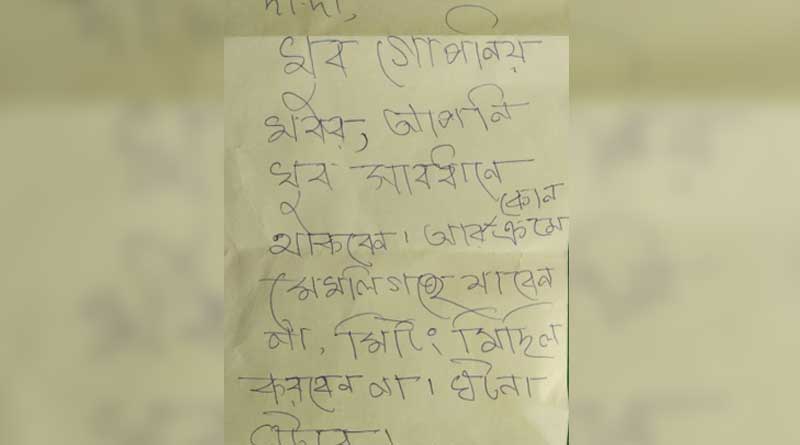 দাদা,
খুব গোপনিয়
খবর, আপনি
খুব সাবধানে
থাকবেন। আর কোন ক্রমে
মেমলিগঞ্জে যাবেন
না, মিটিং মিছিল
করবেন না। ঘটনা